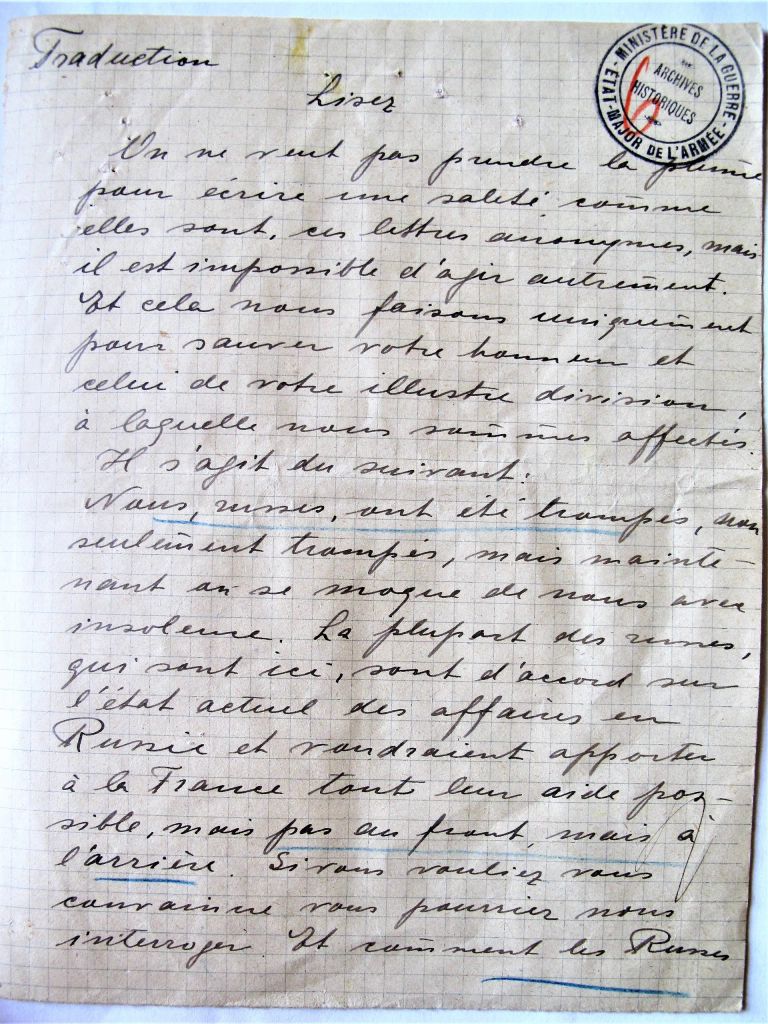 Traduction
MINISTÈRE DE LA GUERRE
ARCHIVES
HISTORIQUES
- ÉTAT-MAJOR DE L'ARMÉE -
6
Lisez
On ne veut pas prendre la plume
pour écrire une saleté comme
elles sont, ces lettres anonymes, mais
il est impossible d'agir autrement.
Et cela nous faisons uniquement
pour sauver votre honneur et
celui de votre illustre division,
à laquelle nous sommes affectés.
Il s'agit du suivant:
Nous, russes, ont été trompés, non
seulement trompés, mais mainte-
nant on se moque de nous avec
insolence. La plupart des russes,
qui sont ici, sont d'accord sur
l'état actuel des affaires en
Russie et voudraient apporter
à la France tout leur aide pos-
sible, mais pas au front, mais à
l'arrière. Si vous vouliez vous
convaincre vous pourriez nous
interroger. Et comment les Russes